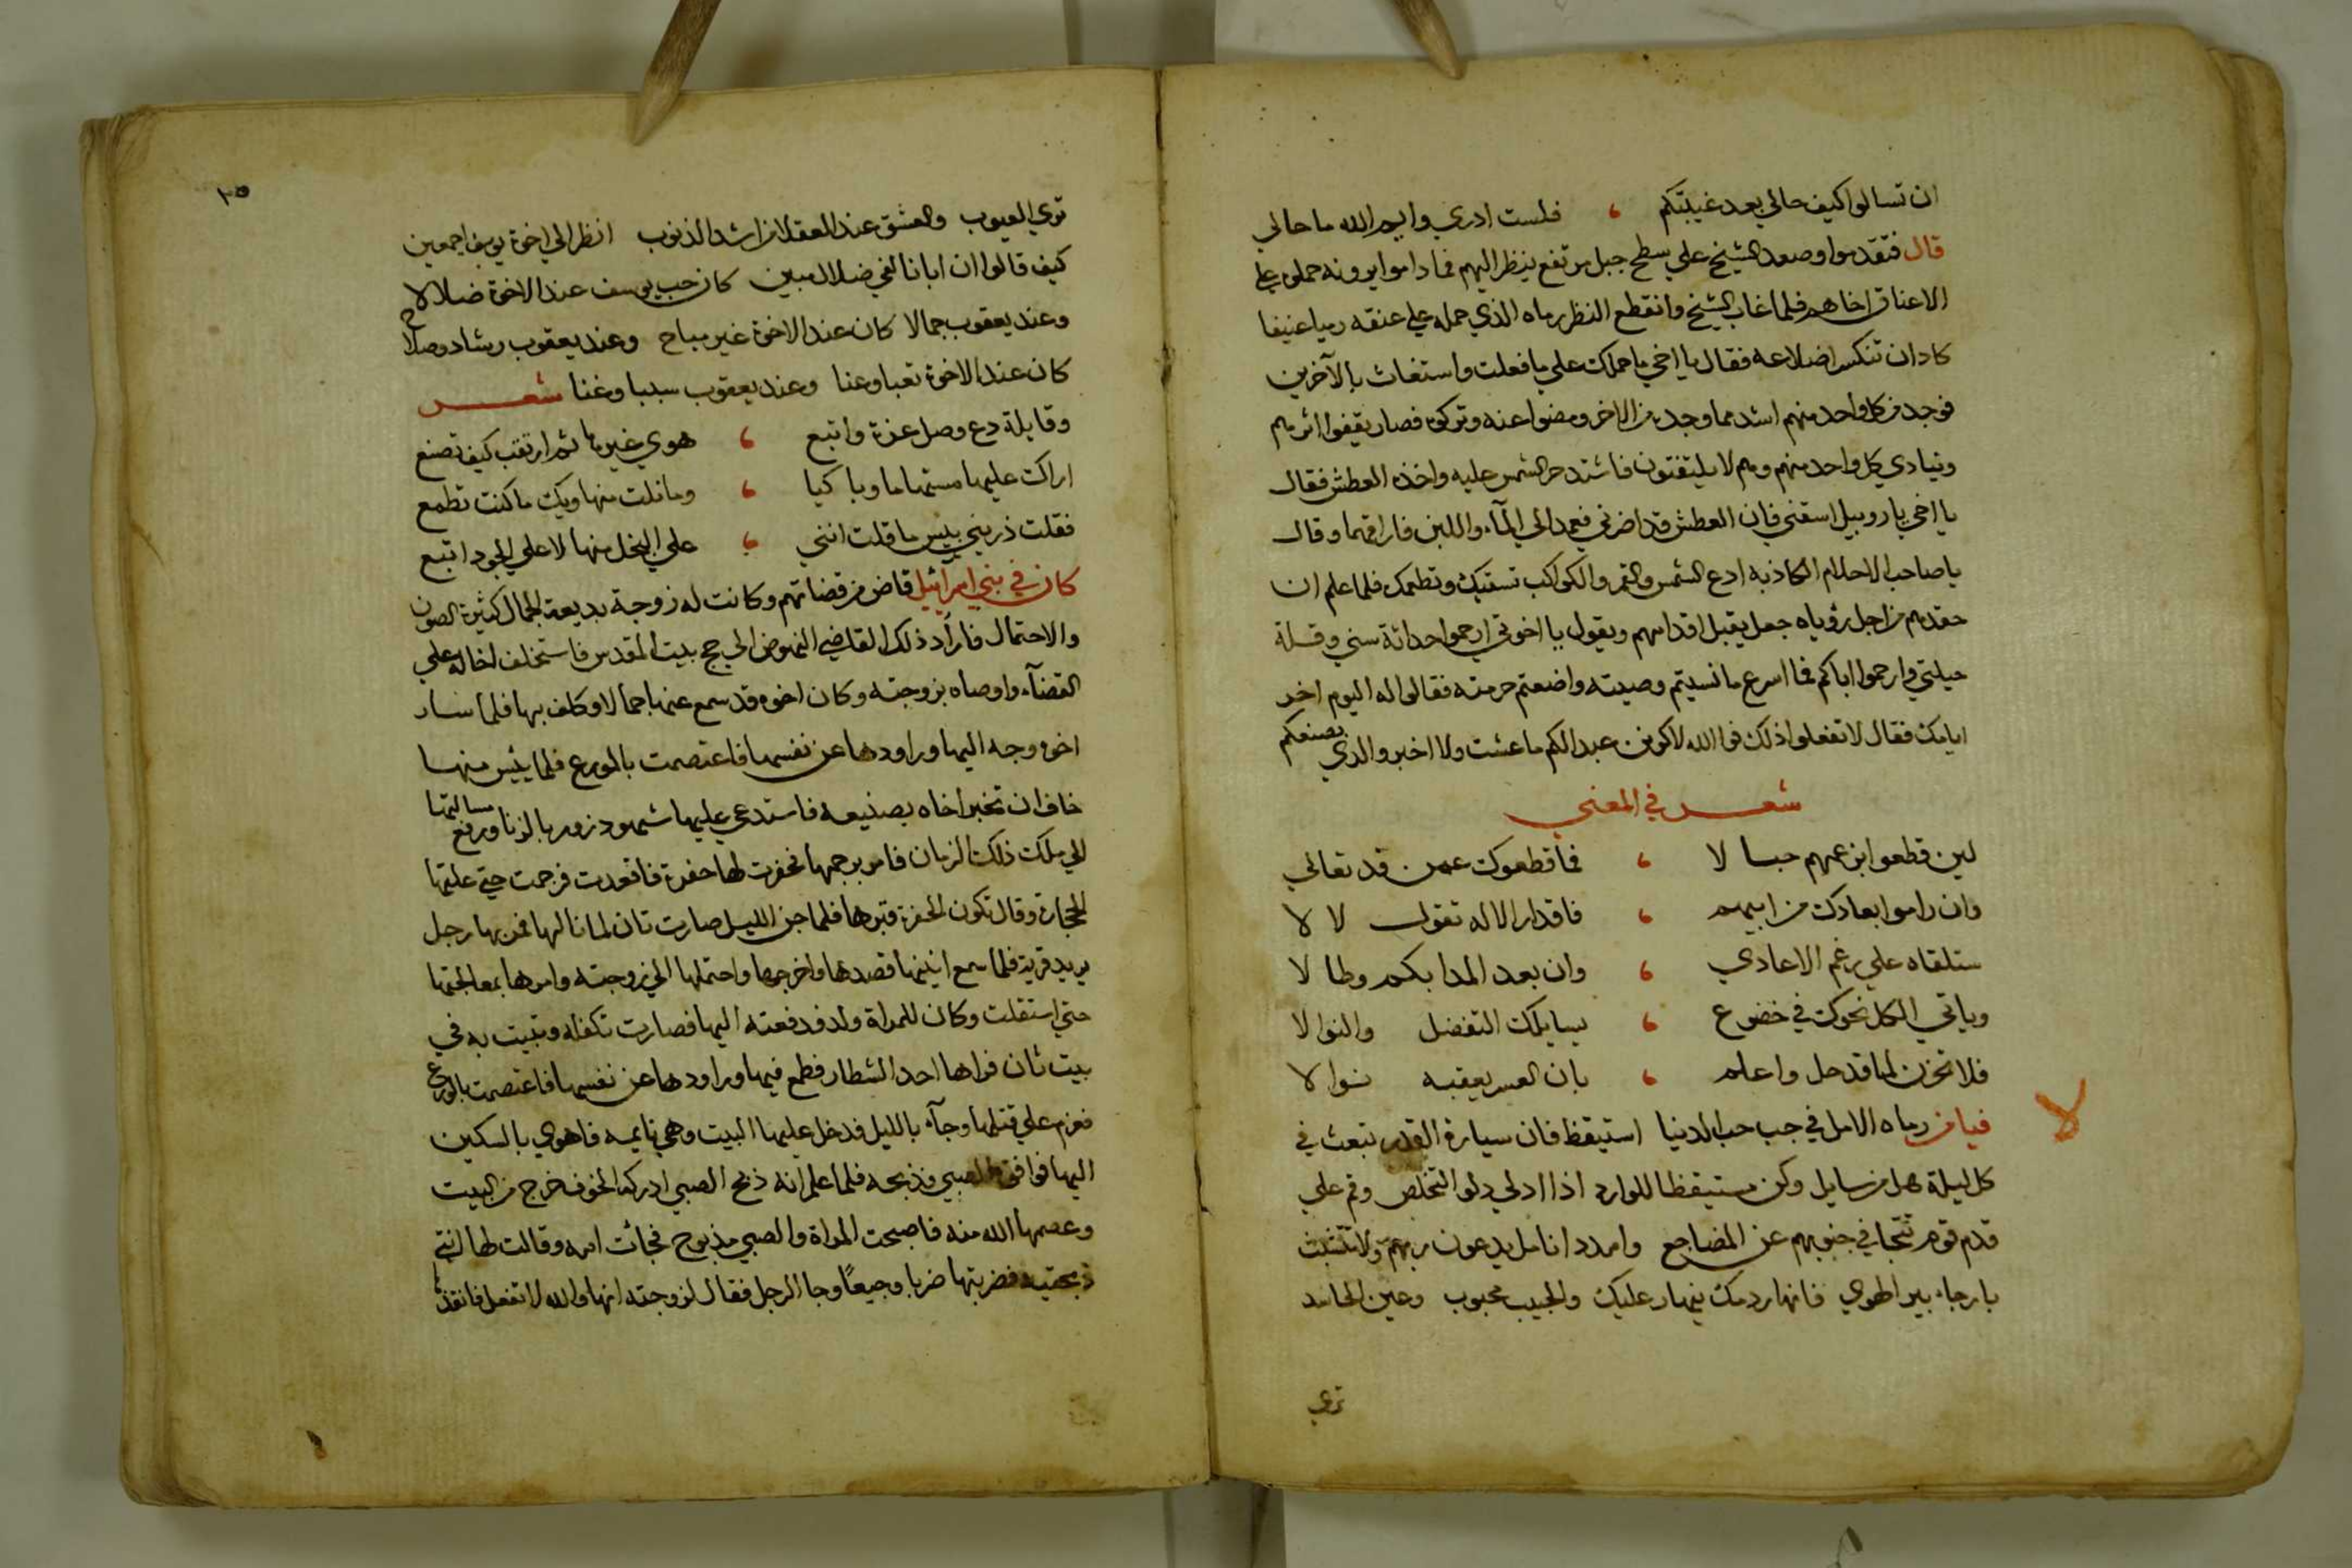 ان تسالوا كيف حالي بعد غيبتكم ، فلست ادري وايم الله ما حالي
قال فتقدموا وصعد الشيخ علي سطح جبل مرتفع ينظر اليهم فما داموا يرونه حملوه علي
الاعناق اخاهم فلما غاب الشيخ وانقطع النظر رماه الذي حمله علي عنقه رميا عنيفا
كاد ان تنكسر اضلاعه فقال يا اخي ما حملك علي ما فعلت واستغاث بالآخرين
فوجد من كل واحد منهم اشد مما وجد من الاخر ومضوا عنه وتركوه فصار يقيفوا اثرهم
وينادي كل واحد منهم وهم لا يلتفتون فاشتد حر الشمس عليه واخذه العطش فقال
يا اخي يا روبيل اسقني فان العطش قد اضرني فعمد الي المآء واللبن فاراقهما وقال
يا صاحب الاحلام الكاذبه ادع الشمس والقمر والكواكب تسقيك وتطعمك فلما علم ان
حقدهم من اجل رؤياه جعل يقبل اقدامهم ويقول يا اخوتي ارحموا حداثة سني وقلة
حيلتي وارحموا اباكم فما اسرع ما نسيتم وصيته واضعتم حرمته فقالوا له اليوم اخر
ايامك فقال لا تفعلوا ذلك فوالله لاكونن عبدا لكم ما عشت ولا اخبر والدي بصنعكم
شعر في المعني
لين قطعوا ابن عمهم حبالا ، فما قطعوك عمن قد تعالي
وان راموا بعادك من ابيهم ، فاقدار الاله تقول لا لا
ستلقاه علي رغم الاعادي ، وان بعد المدا بكم وطالا
وياتي الكل نحوك في خضوع ، يسايلك التفضل والنوالا
فلا تحزن لما قد حل واعلم ، بان العسر يعقبه نوالا
فيا من رماه الامل في جب حب الدنيا استيقظ فان سيارة القدر تبعث في
كل ليلة هل من سايل وكن مستيقظا للوارد اذا ادلي دلو التخلص وقم علي
قدم قوم تتجافي جنوبهم عن المضاجع وامدد انامل يدعون ربهم ولا تتشبث
بارجاء بير الهوي فانهار دمك ينهار عليك والحبيب محبوب وعين الحاسد
تري
٢٥
تري العيوب والعشق عند العقلا من اشد الذنوب انظر الي اخوة يوسف اجمعين
كيف قالوا ان ابانا لفي ضلال مبين كان حب يوسف عند الاخوة ضلالا
وعند يعقوب جمالا كان عند الاخوة غير مباح وعند يعقوب رشاد وصلاح
كان عند الاخوة تعبا وعنا وعند يعقوب سببا وغنا شعر
وقايلة دع وصل عزة واتبع ، هوي غيرها ثم ارتقب كيف تصنع
اراك عليها مستهاما وباكيا ، وما نلت منها ويك ما كنت تطمع
فقلت ذريني بيس ما قلت انني ، علي البخل منها لا علي الجود اتبع
كان في بني اسرآئيل قاض من قضاتهم وكانت له زوجة بديعة الجمال كثيرة الصون
والاحتمال فاراد ذلك القاضي النهوض الي حج بيت المقدس فاستخلف اخاله علي
القضآء واوصاه بزوجته وكان اخوه قد سمع عنها جمالا وكلف بها فلما سار
اخوه وجه اليها وراودها عن نفسها فاعتصمت بالورع فلما يئس منها
خاف ان تخبر اخاه بصنيعه فاستدعي عليها شهود زور بالزنا ورفع مسالتها
الي ملك ذلك الزمان فامر برجمها فحفرت لها حفرة فاقعدت فرجمت حتي علتها
الحجارة وقال تكون الحفرة قبرها فلما جن الليل صارت تان لما نالها فمر بها رجل
يريد قرية فلما سمع انينها قصدها واخرجها واحتملها الي زوجته وامرها بمعالجتها
حتي استقلت وكان للمراة ولد فدفعته اليها فصارت تكفله وتبيت به في
بيت ثان فراها احد الشطار فطمع فيها وراودها عن نفسها فاعتصمت بالورع
فعزم علي قتلها وجآء بالليل فدخل عليها البيت وهي نايمه فاهوي بالسكين
اليها فوافق الصبي فذبحه فلما علم انه ذبح الصبي ادركه الخوف فخرج من البيت
وعصمها الله منه فاصبحت المراة والصبي مذبوح فجائت امه وقالت لها انتي
ذبحتيه فضربتها ضربا وجيعًا وجا الرجل فقال لزوجته انها والله لا تفعل فانقذها